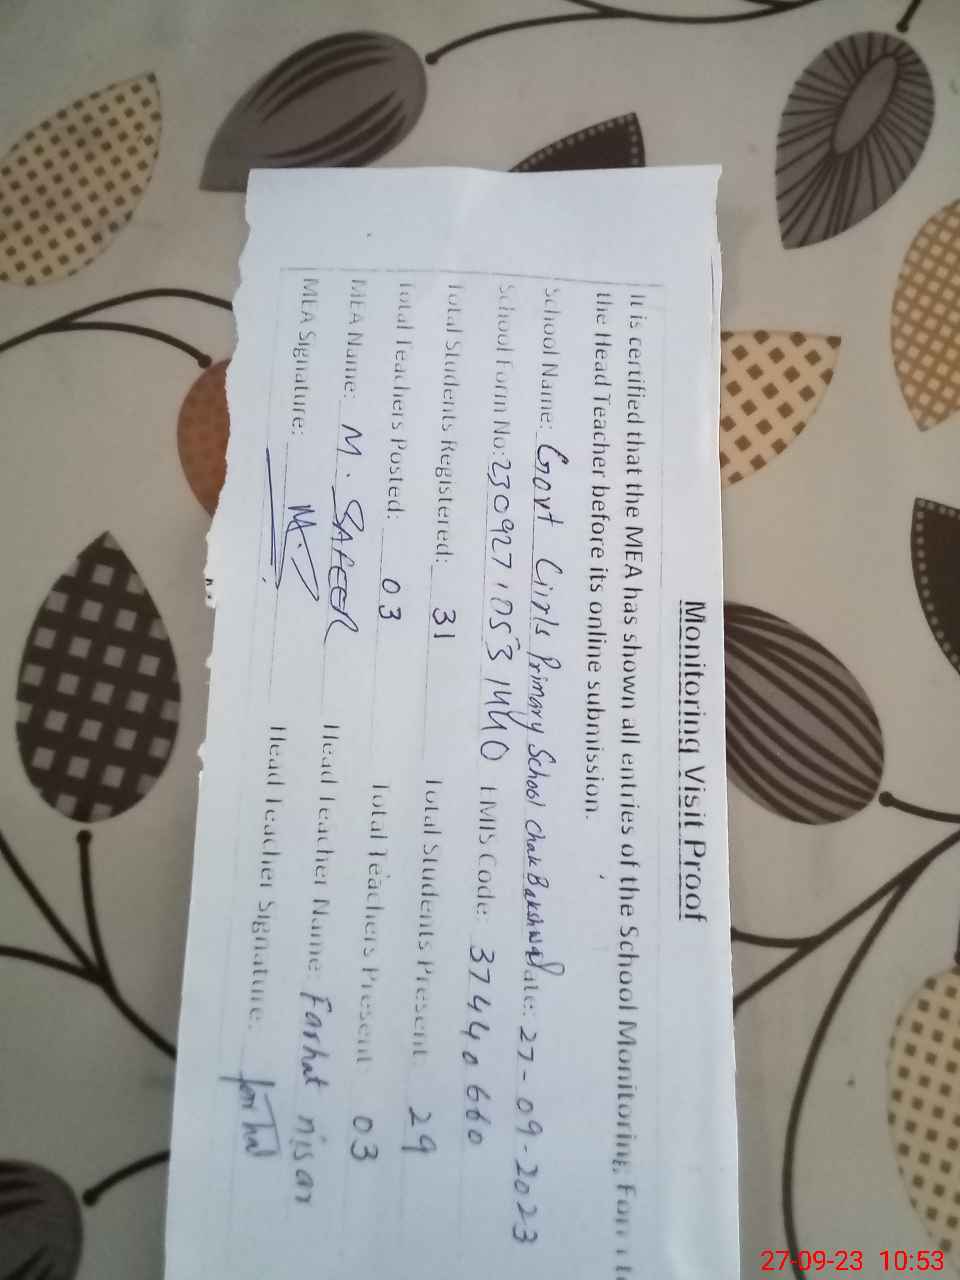 Monitoring Visit Proof
It is certified that the MEA has shown all entries of the School Monitoring Form to
the Head Teacher before its online submission.
School Name: Govt Girls Primary School Chak Bakshwal Date: 27-09-2023
School Form No: 230927 1053 1440 EMIS Code: 37440660
Total Students Registered: 31 Total Students Present: 29
Total Teachers Posted: 03 Total Teachers Present: 03
MEA Name: M. SAFEER Head Teacher Name: Farhat nisar
MEA Signature: M. Head Teacher Signature: farhat
27-09-23 10:53